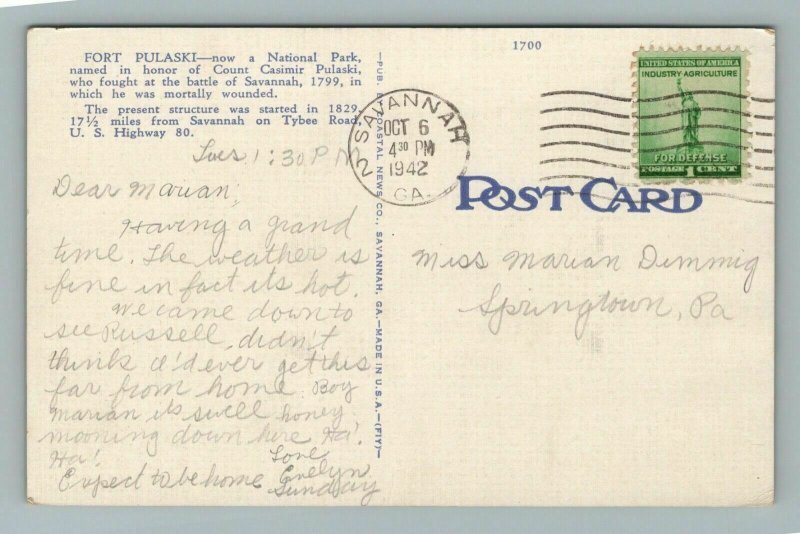 FORT PULASKI—now a National Park,
named in honor of Count Casimir Pulaski,
who fought at the battle of Savannah, 1799, in
which he was mortally wounded.
The present structure was started in 1829,
17½ miles from Savannah on Tybee Road,
U. S. Highway 80.
Tues 1:30 P M
Dear Marian,
Having a grand
time. The weather is
fine in fact its hot.
We came down to
see Russell, didn't
think I'd ever get this
far from home. Boy
Marian its swell honey
mooning down here Ha!
Ha!
Love
Evelyn
Expect to be home Sunday
—PUB BY COASTAL NEWS CO., SAVANNAH, GA.—MADE IN U.S.A.—(FIY)—
1700
SAVANNAH
2
OCT 6
4 30 PM
1942
GA.
UNITED STATES OF AMERICA
INDUSTRY AGRICULTURE
FOR DEFENSE
POSTAGE 1 CENT
POST CARD
Miss Marian Dimmig
Springtown, Pa